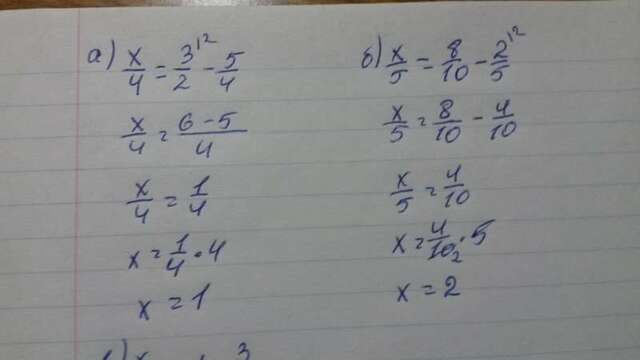 а) x/4 = 3/2 |2 - 5/4
x/4 = (6 - 5)/4
x/4 = 1/4
x = 1/4 · 4
x = 1
б) x/5 = 8/10 - 2/5 |2
x/5 = 8/10 - 4/10
x/5 = 4/10
x = 4/10 2 · 5
x = 2